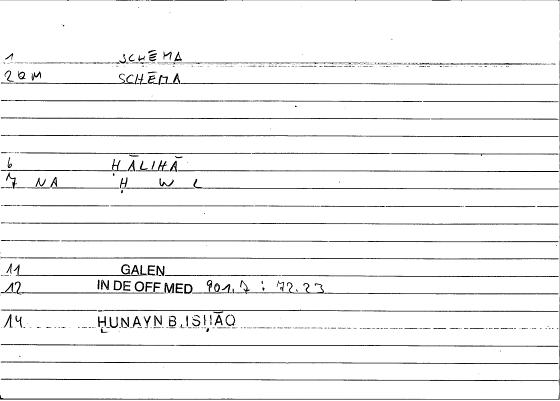 1 SCHĒMA
2 Q M SCHĒMA
6 ḤĀLIHĀ
7 NA Ḥ W L
11 GALEN
12 IN DE OFF MED 901.7 : 72.23
14 ḤUNAYN B. ISḤĀQ